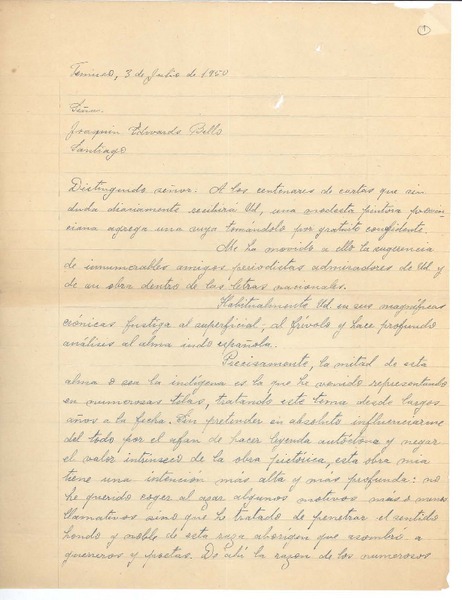 1
Temuco, 3 de Julio de 1950
Señor
Joaquín Edwards Bello
Santiago
Distinguido señor: A los centenares de cartas que sin
duda diariamente recibirá Ud, una modesta pintora provin-
ciana agrega una suya tomándolo por gratuito confidente.
Me ha movido a ello la sugerencia
de innumerables amigos periodistas admiradores de Ud y
de su obra dentro de las letras nacionales.
Habitualmente Ud en sus magníficas
crónicas fustiga al superficial, al frívolo y hace profundo
análisis al alma indo española.
Precisamente, la mitad de esta
alma o sea la indígena es la que he venido representando
en numerosas telas, tratando este tema desde largos
años a la fecha. Sin pretender en absoluto influenciarme
del todo por el afán de hacer leyenda autóctona y negar
el valor intrínseco de la obra pictórica, esta obra mía
tiene una intención más alta y más profunda: no
he querido coger al azar algunos motivos más o menos
llamativos sino que he tratado de penetrar el sentido
hondo y noble de esta raza aborigen que asombró a
guerreros y poetas. De allí la razón de los numerosos